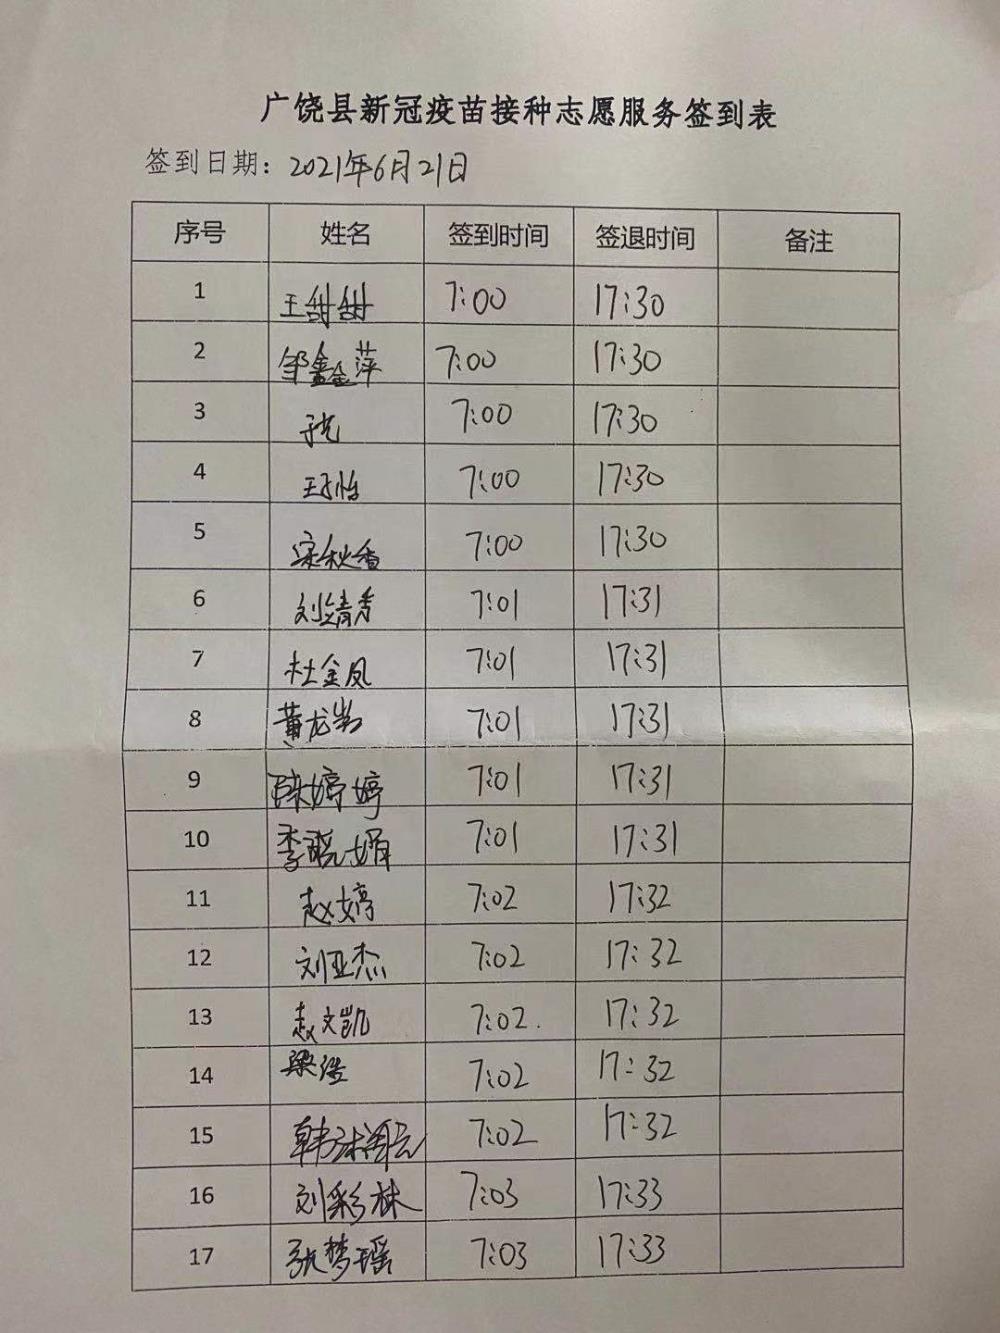 广饶县新冠疫苗接种志愿服务签到表
签到日期：2021年6月21日
序号 姓名 签到时间 签退时间 备注
1 王甜甜 7:00 17:30
2 邹鑫萍 7:00 17:30
3 7:00 17:30
4 7:00 17:30
5 宋秋香 7:00 17:30
6 刘靖秀 7:01 17:31
7 杜金凤 7:01 17:31
8 黄龙 7:01 17:31
9 陈婷婷 7:01 17:31
10 李晓娟 7:01 17:31
11 赵婷 7:02 17:32
12 刘亚杰 7:02 17:32
13 赵文凯 7:02 17:32
14 梁浩 7:02 17:32
15 韩 7:02 17:32
16 刘彩林 7:03 17:33
17 张梦瑶 7:03 17:33